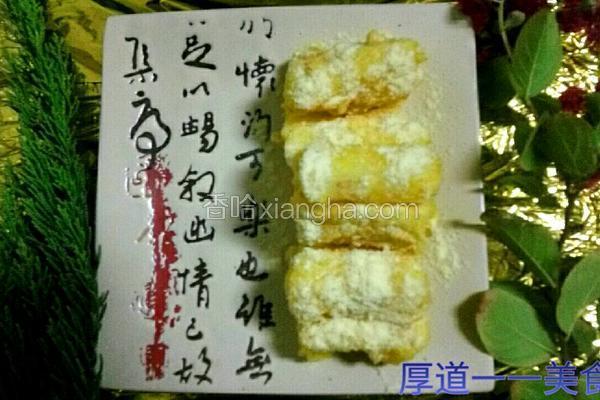 懷可樂也雖無
足以暢叙幽情已故
集序
香哈xiangha.com
厚道一一美食